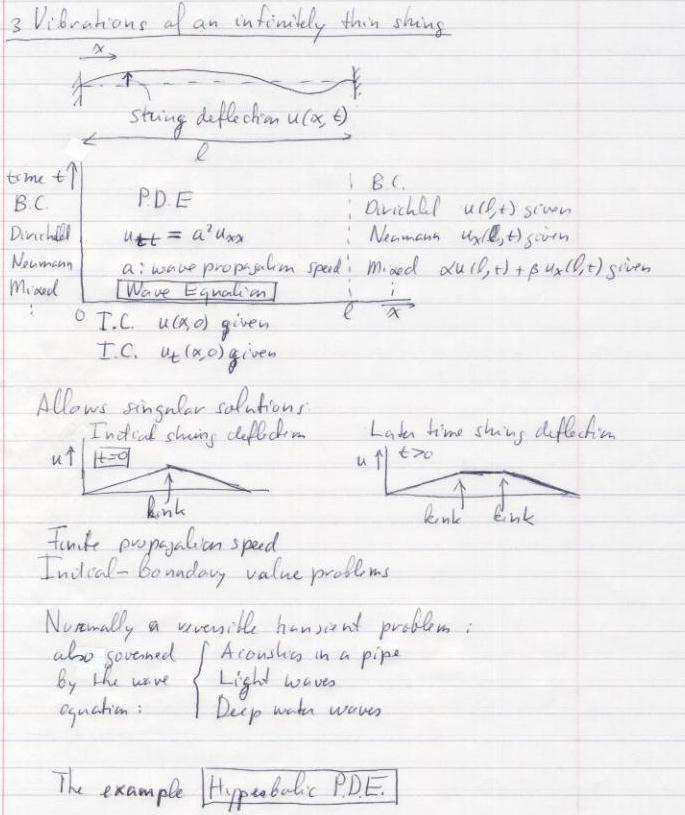 3 Vibrations of an infinitely thin string
x
string deflection u(x, t)
l
time t
B.C.
Dirichlet
Neumann
Mixed
:
P.D.E
u_tt = a²u_xx
a: wave propagation speed
Wave Equation
B.C.
Dirichlet u(l,t) given
Neumann u_x(l,t) given
Mixed αu(l,t) + βu_x(l,t) given
:
0
l
x
I.C. u(x,0) given
I.C. u_t(x,0) given
Allows singular solutions:
Initial string deflection
u t=0
kink
Later time string deflection
u t>0
kink kink
Finite propagation speed
Initial-boundary value problems
Normally a reversible transient problem:
also governed
by the wave
equation:
Acoustics in a pipe
Light waves
Deep water waves
The example Hyperbolic P.D.E.